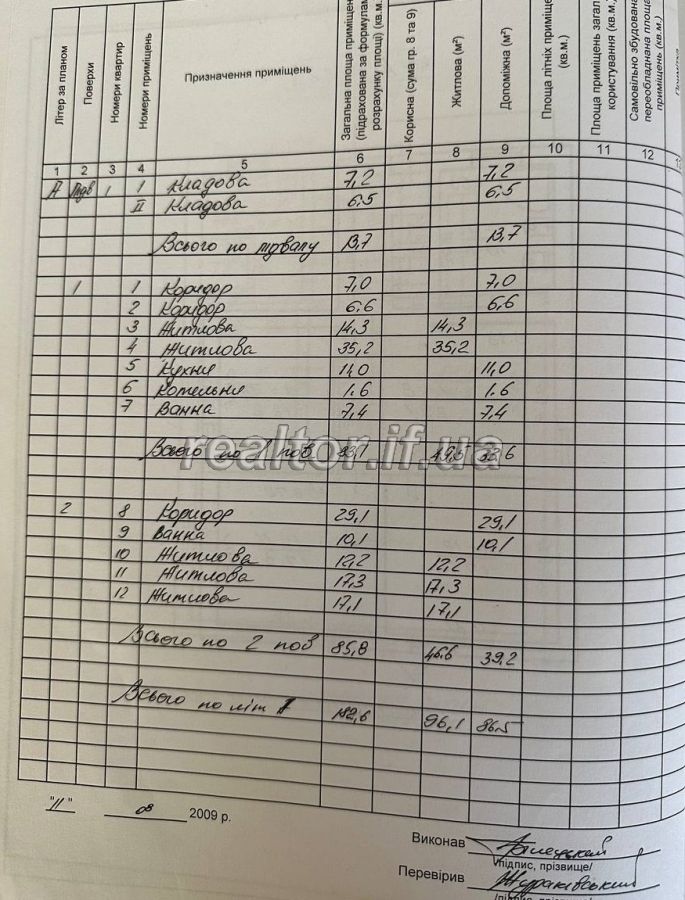 Літер за планом
Поверхи
Номери квартир
Номери приміщень
Призначення приміщень
Загальна площа приміщень (підрахована за формулами розрахунку площі) (кв.м.)
Корисна (сума гр. 8 та 9)
Житлова (м²)
Допоміжна (м²)
Площа літніх приміщень (кв.м.)
Площа приміщень загального користування (кв.м.)
Самовільно збудована переобладнана площа приміщень (кв.м.)
1 2 3 4 5 6 7 8 9 10 11 12
А Підв 1 I Кладова 7,2 7,2
II Кладова 6,5 6,5
Всього по підвалу 13,7 13,7
1 1 Коридор 7,0 7,0
2 Коридор 6,6 6,6
3 Житлова 14,3 14,3
4 Житлова 35,2 35,2
5 Кухня 11,0 11,0
6 Котельня 1.6 1.6
7 Ванна 7,4 7,4
Всього по 1 пов 83,1 49,5 33,6
realtor.if.ua
2 8 Коридор 29,1 29,1
9 Ванна 10,1 10,1
10 Житлова 12,2 12,2
11 Житлова 17,3 17,3
12 Житлова 17,1 17,1
Всього по 2 пов 85,8 46.6 39,2
Всього по літ 182,6 96,1 86.5
"11" 08 2009 р.
Виконав
/підпис, прізвище/
Перевірив Жураківський
/підпис, прізвище/